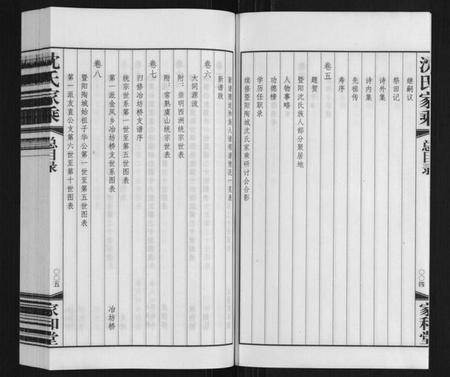 沈氏家乘
总目录
〇〇四
家和堂
继嗣议
祭田记
诗外集
诗内集
先祖传
寿序
卷五
题赞
暨阳沈氏族人部分聚居地
人物事略
功德榜
学历任职录
续修暨阳陶城沈氏家乘研讨会合影
卷六
新谱跋
大同源流
附:崇明西洲统宗世表
附:常熟虞山统宗世表
卷七
归修冶坊桥支谱序
统宗世系第一世至第五世图表
第一派金凤乡冶坊桥支世系图表
冶坊桥
卷八
暨阳陶城始祖子华公第一世至第五世图表
第一派友直公支第六世至第十世图表
沈氏家乘
总目录
〇〇五
家和堂